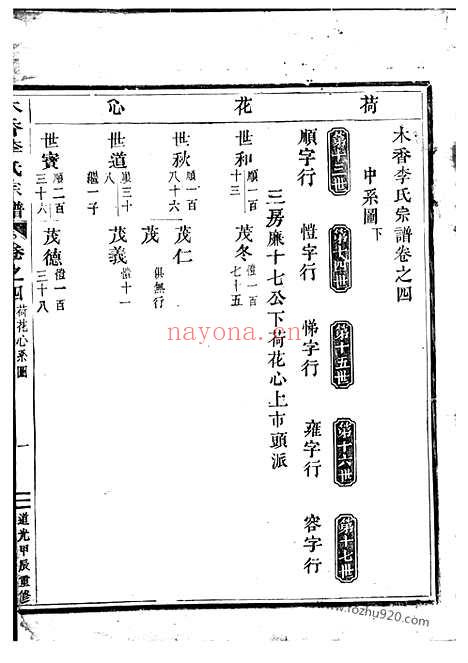 荷花心
木香李氏宗譜卷之四
中系圖下
第十三世 第十四世 第十五世 第十六世 第十七世
順字行 愷字行 悌字行 雍字行 容字行
三房廉十七公下荷花心上市頭派
世和 順一百十三 茂冬 愷一百七十五
世秋 順一百八十六 茂仁
茂 俱無行
世道 順三十八 茂義 愷十一
繼一子
世寶 順二百三十六 茂德 愷一百三十八
木香李氏宗譜 卷之四 荷花心系圖 一 道光甲辰重修
nayona.cn
www.rozhu920.com